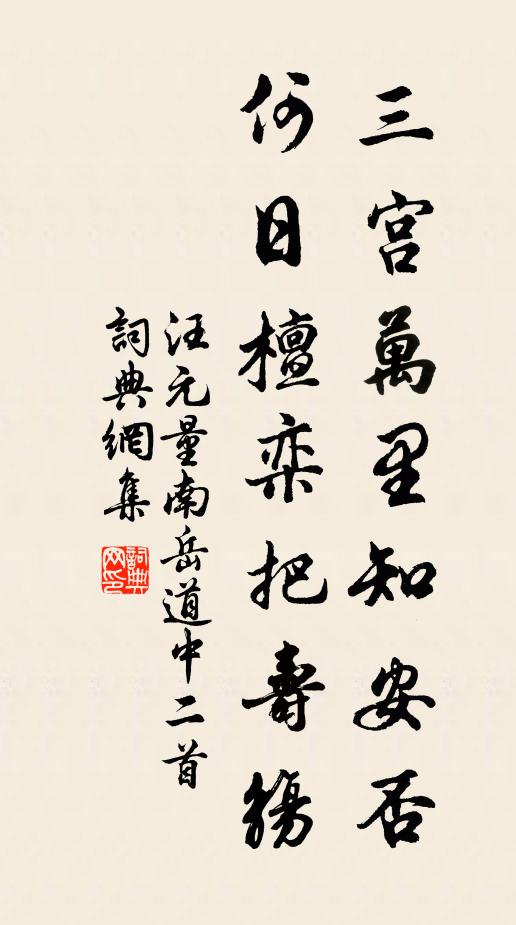 三宫萬里知安否
何日檀栾把壽觴
汪元量南岳道中二首
詞典網集
詞典网印